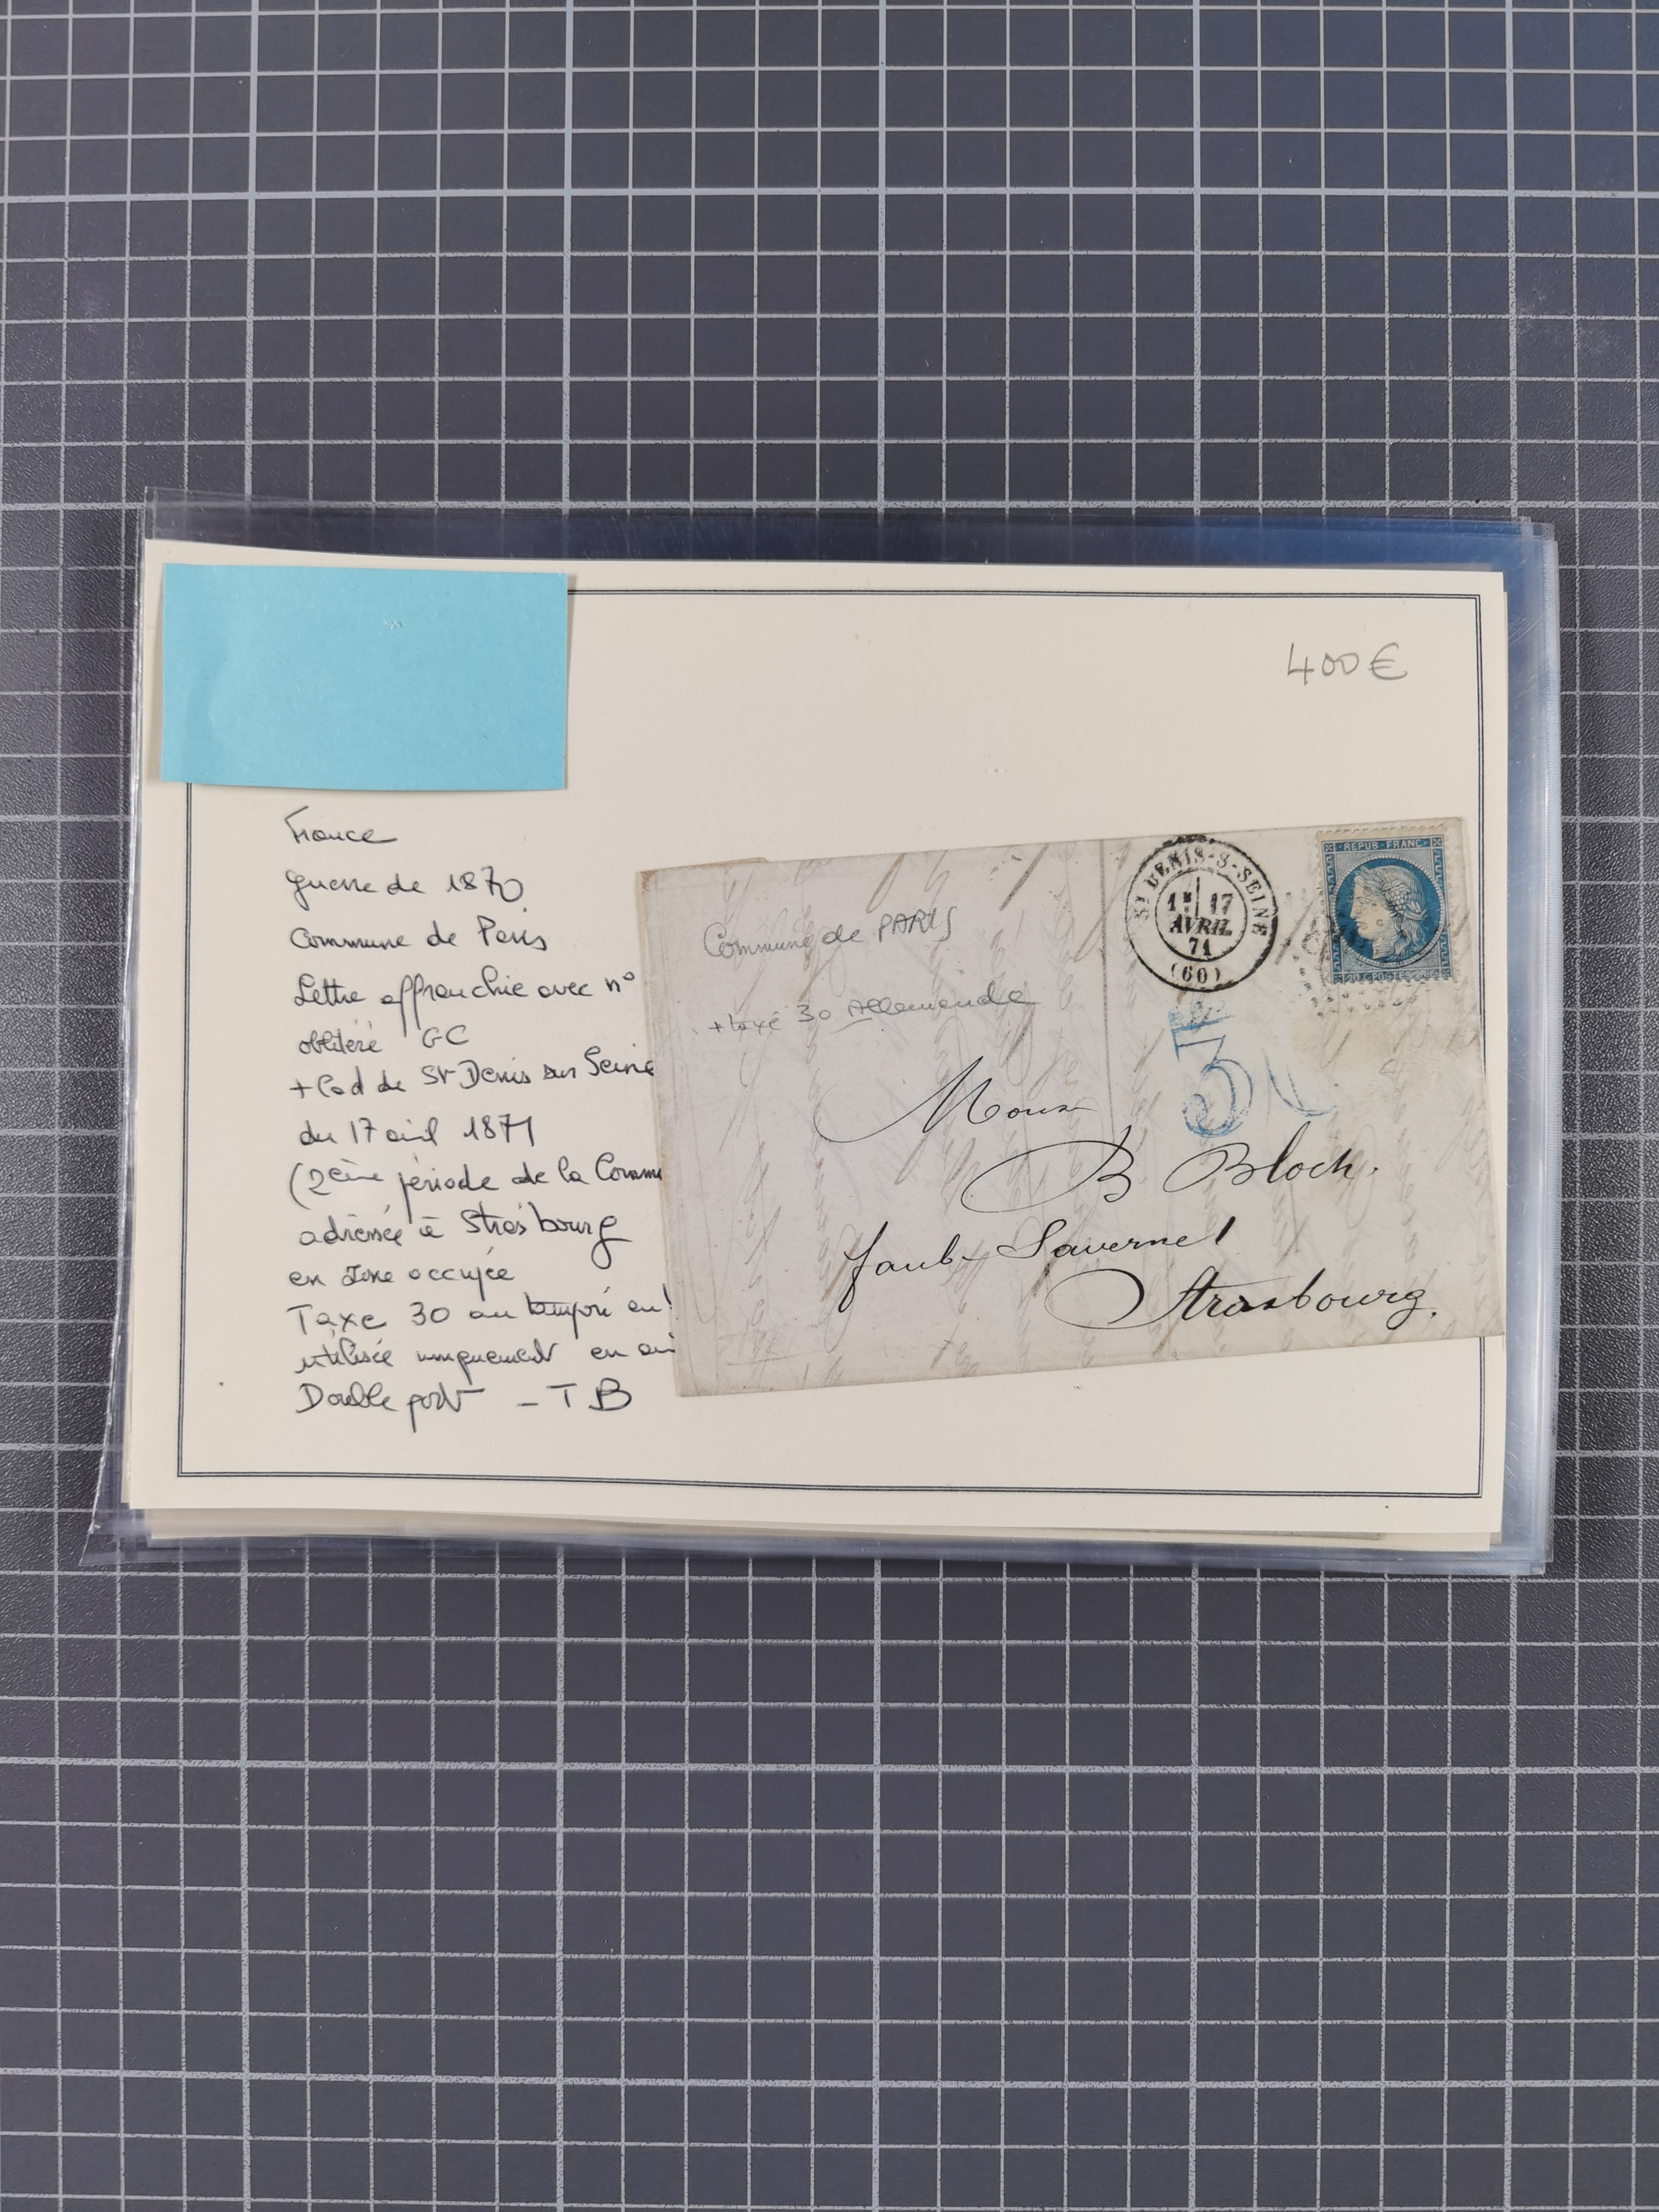 400€
France
guerre de 1870
Commune de Paris
Lettre affranchie avec n°
oblitéré GC
+ Cad de St Denis sur Seine
du 17 avril 1871
(2ème période de la Commu
adressée à Strasbourg
en zone occupée
Taxe 30 au tampon
utilisée uniquement en
Double port - TB
Commune de PARIS
+ taxe 30 Allemande
ST DENIS-S-SEINE
17
AVRIL
71
(60)
REPUB·FRANC·
30
B Bloch.
faub Saverne
Strasbourg.